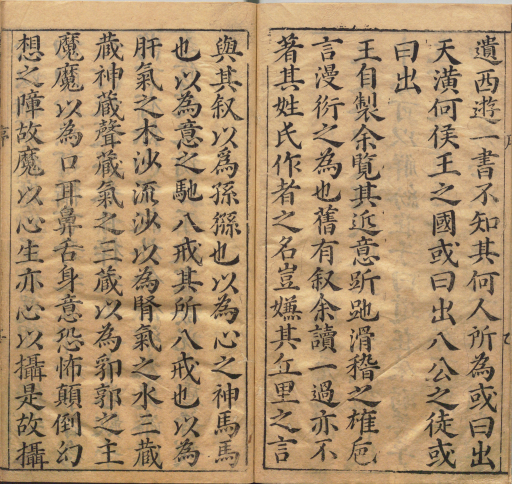 遺西遊一書不知其何人所為或曰出
天潢何侯王之國或曰出八公之徒或
曰出
王自製余覽其近意跅跑滑稽之雄卮
言漫衍之為也舊有叙余讀一過亦不
著其姓氏作者之名豈嫌其丘里之言
與其叙以為孫猻也以為心之神馬馬
也以為意之馳八戒其所八戒也以為
肝氣之木沙流沙以為腎氣之水三藏
藏神藏聲藏氣之三藏以為郛郭之主
魔魔以為口耳鼻舌身意恐怖顛倒幻
想之障故魔以心生亦心以攝是故攝